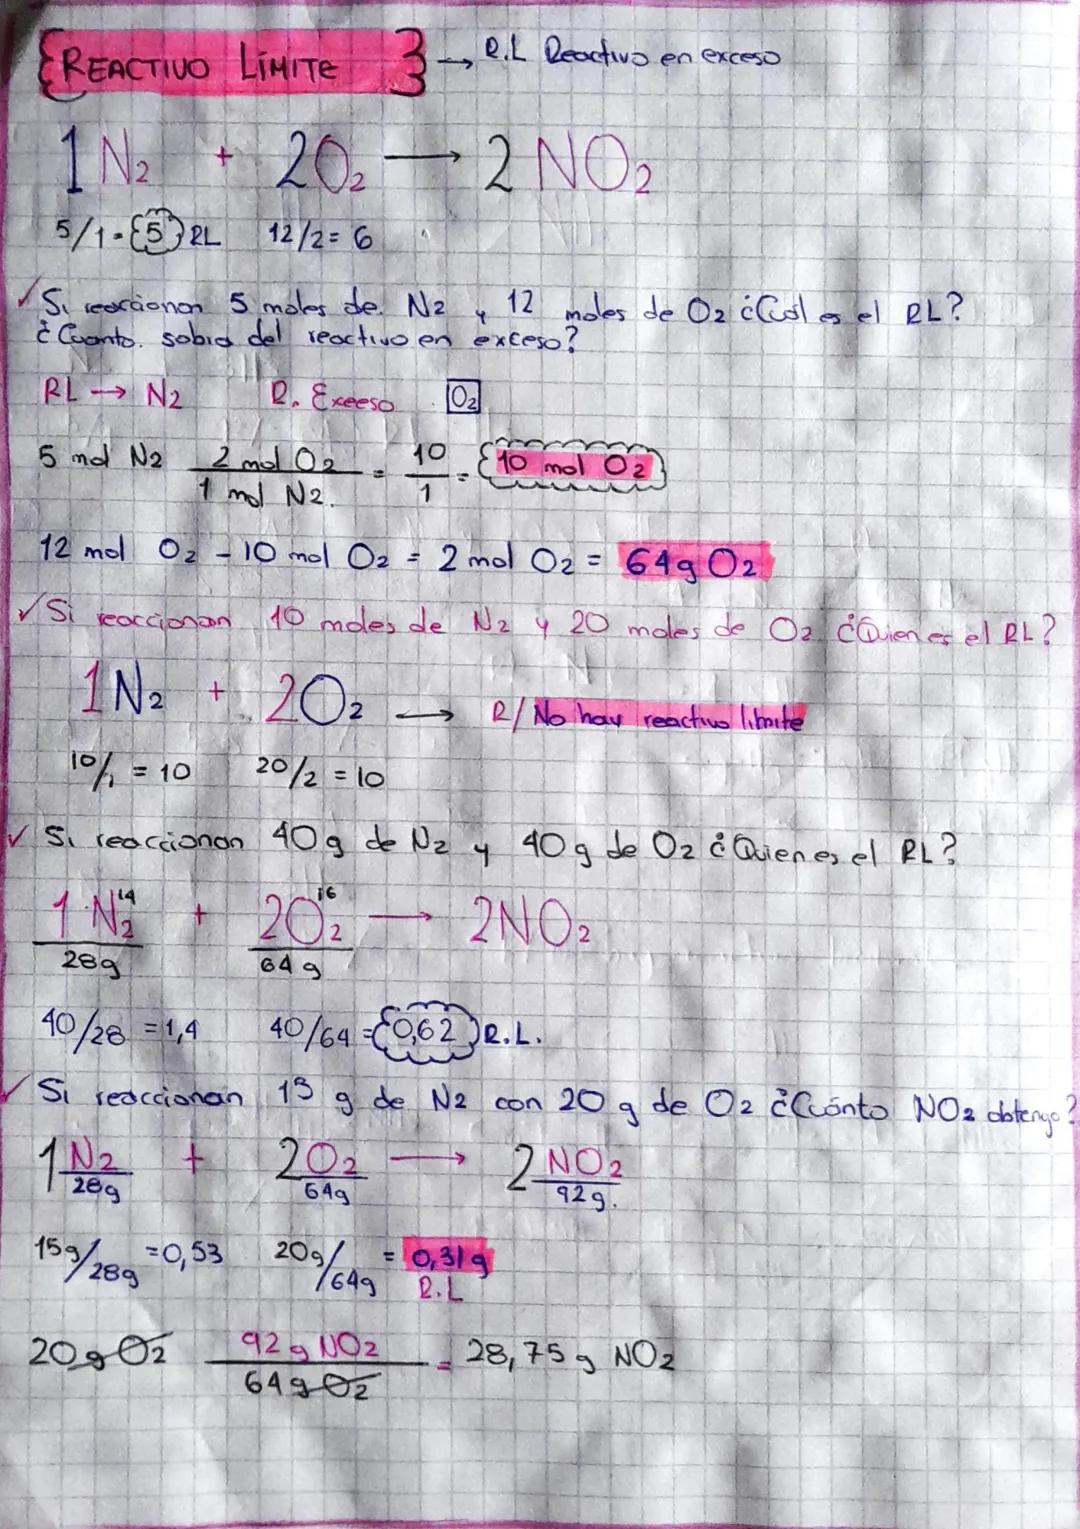 {REACTIVO LÍMITE} → R.L Reactivo en exceso
1 N2 + 2O2 → 2 NO2
5/1 = {5} RL 12/2 = 6
✓ Si reaccionan 5 moles de N2 y 12 moles de O2 ¿Cuál es el RL?
¿Cuanto. sobra del reactivo en exceso?
RL → N2 R. Exeeso O2
5 mol N2 2 mol O2 / 1 mol N2. = 10/1 = {10 mol O2}
12 mol O2 - 10 mol O2 = 2 mol O2 = 64g O2
✓ Si reaccionan 10 moles de N2 y 20 moles de O2 ¿Quien es el RL?
1N2 + 2O2 → R/ No hay reactivo limite
10/1 = 10 20/2 = 10
✓ Si reaccionan 40g de N2 y 40g de O2 ¿Quien es el RL?
14 16
1 N2 + 2O2 → 2NO2
28g 64 g
40/28 = 1,4 40/64 = {0,62} R.L.
✓ Si reaccionan 15 g de N2 con 20 g de O2 ¿Cuánto NO2 obtengo?
1 N2 + 2 O2 → 2 NO2
28g 64g 92g.
15g/28g = 0,53 20g/64g = 0,31g
R.L
20g O2 92g NO2 / 64g O2 = 28,75g NO2